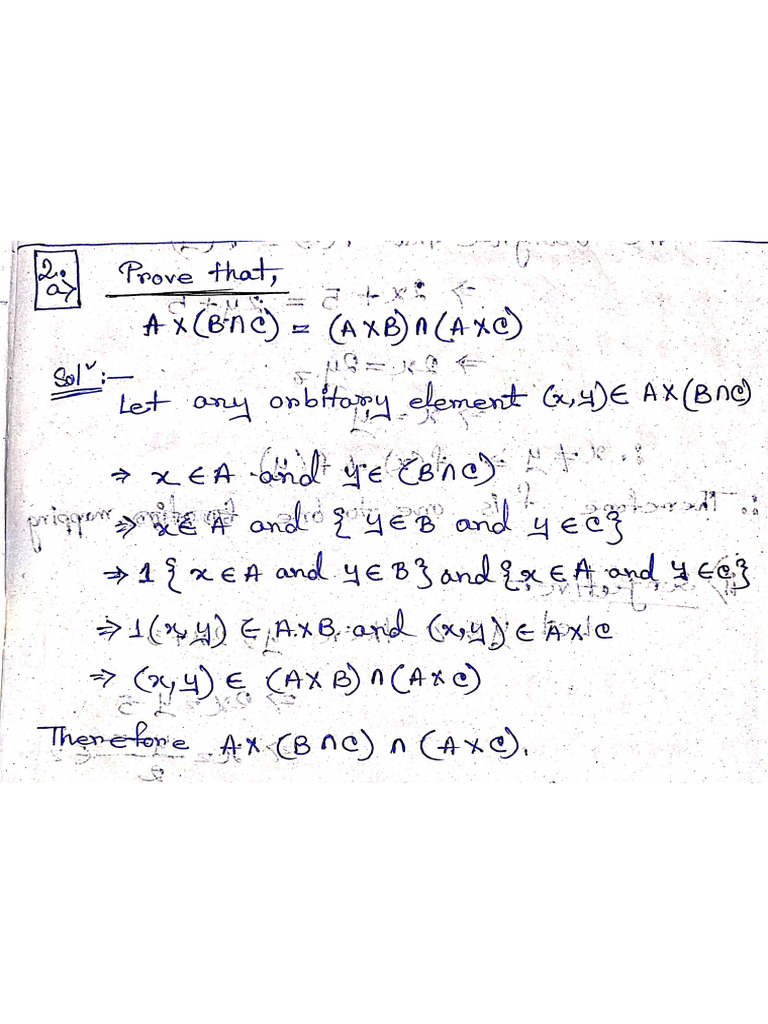 2.
a>
Prove that,
A X (B∩C) = (A X B) ∩ (A X C)
Solⁿ:-
Let any orbitary element (x,y) ∈ A X (B∩C)
⇒ x ∈ A and y ∈ (B∩C)
⇒ x ∈ A and { y ∈ B and y ∈ C}
⇒ 1 { x ∈ A and y ∈ B} and { x ∈ A and y ∈ C}
⇒ 1 (x,y) ∈ A X B and (x,y) ∈ A X C
⇒ (x,y) ∈ (A X B) ∩ (A X C)
Therefore A X (B ∩ C) ∩ (A X C).